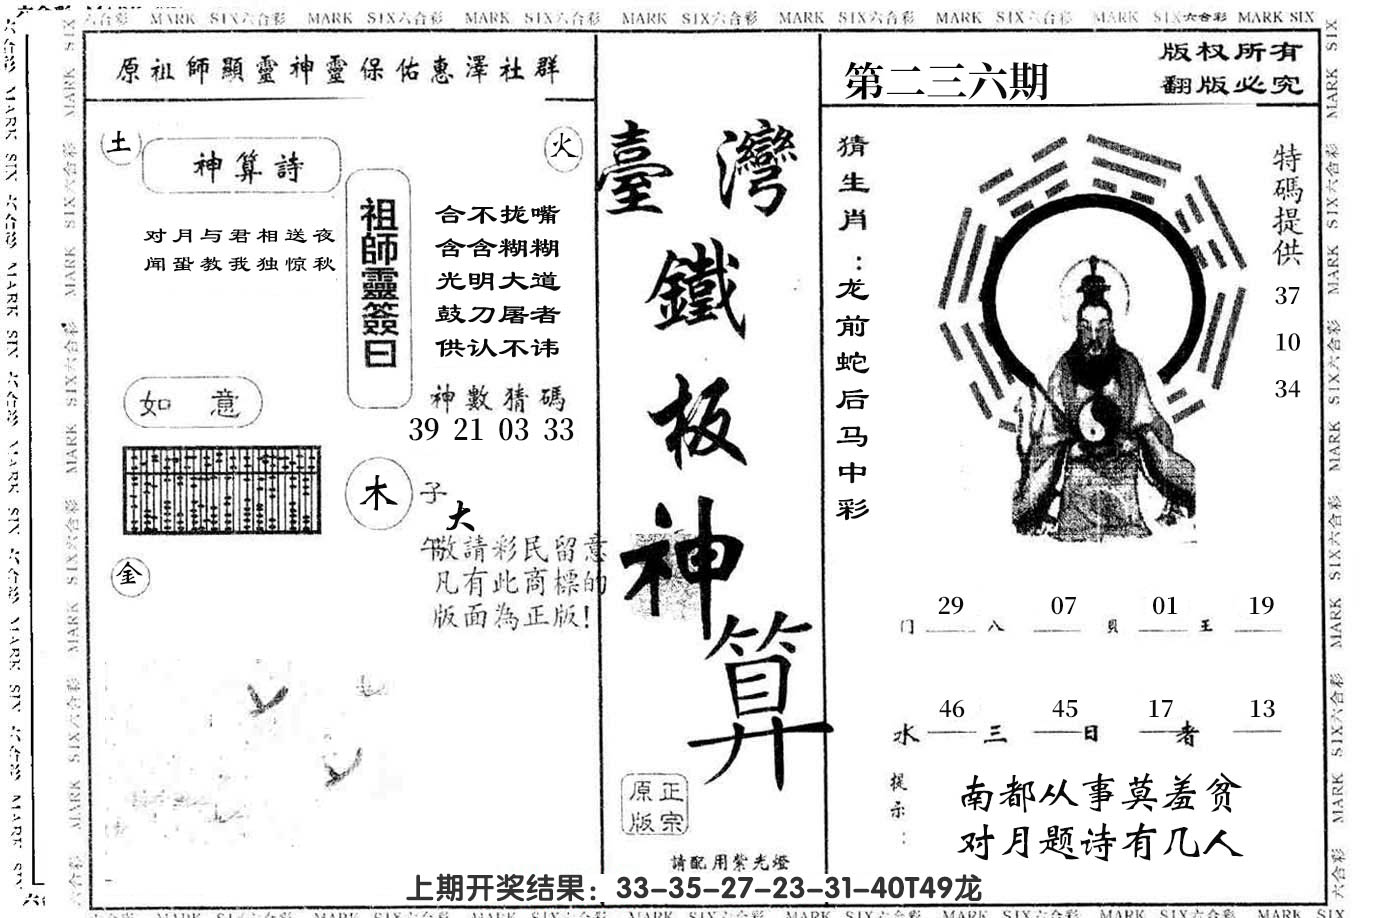 六合彩 MARK SIX六合彩 MARK SIX六合彩 MARK SIX六合彩 MARK SIX六合彩 MARK SIX六合彩 MARK SIX六合彩 MARK SIX六合彩 MARK SIX
原祖師顯靈神靈保佑惠澤社群
土
神算詩
火
对月与君相送夜
闻蛩教我独惊秋
祖師靈簽曰
合不拢嘴
含含糊糊
光明大道
鼓刀屠者
供认不讳
神數猜碼
39 21 03 33
如 意
木
子
大
午
敬請彩民留意
凡有此商標的
版面為正版!
金
臺灣
鐵
板
神
算
原正
版宗
請配用紫光燈
第二三六期
版权所有
翻版必究
猜生肖:龙前蛇后马中彩
特碼提供
37
10
34
29 07 01 19
门 八 貝 王
46 45 17 13
水 三 日 者
提示:
南都从事莫羞贫
对月题诗有几人
上期开奖结果：33-35-27-23-31-40T49龙